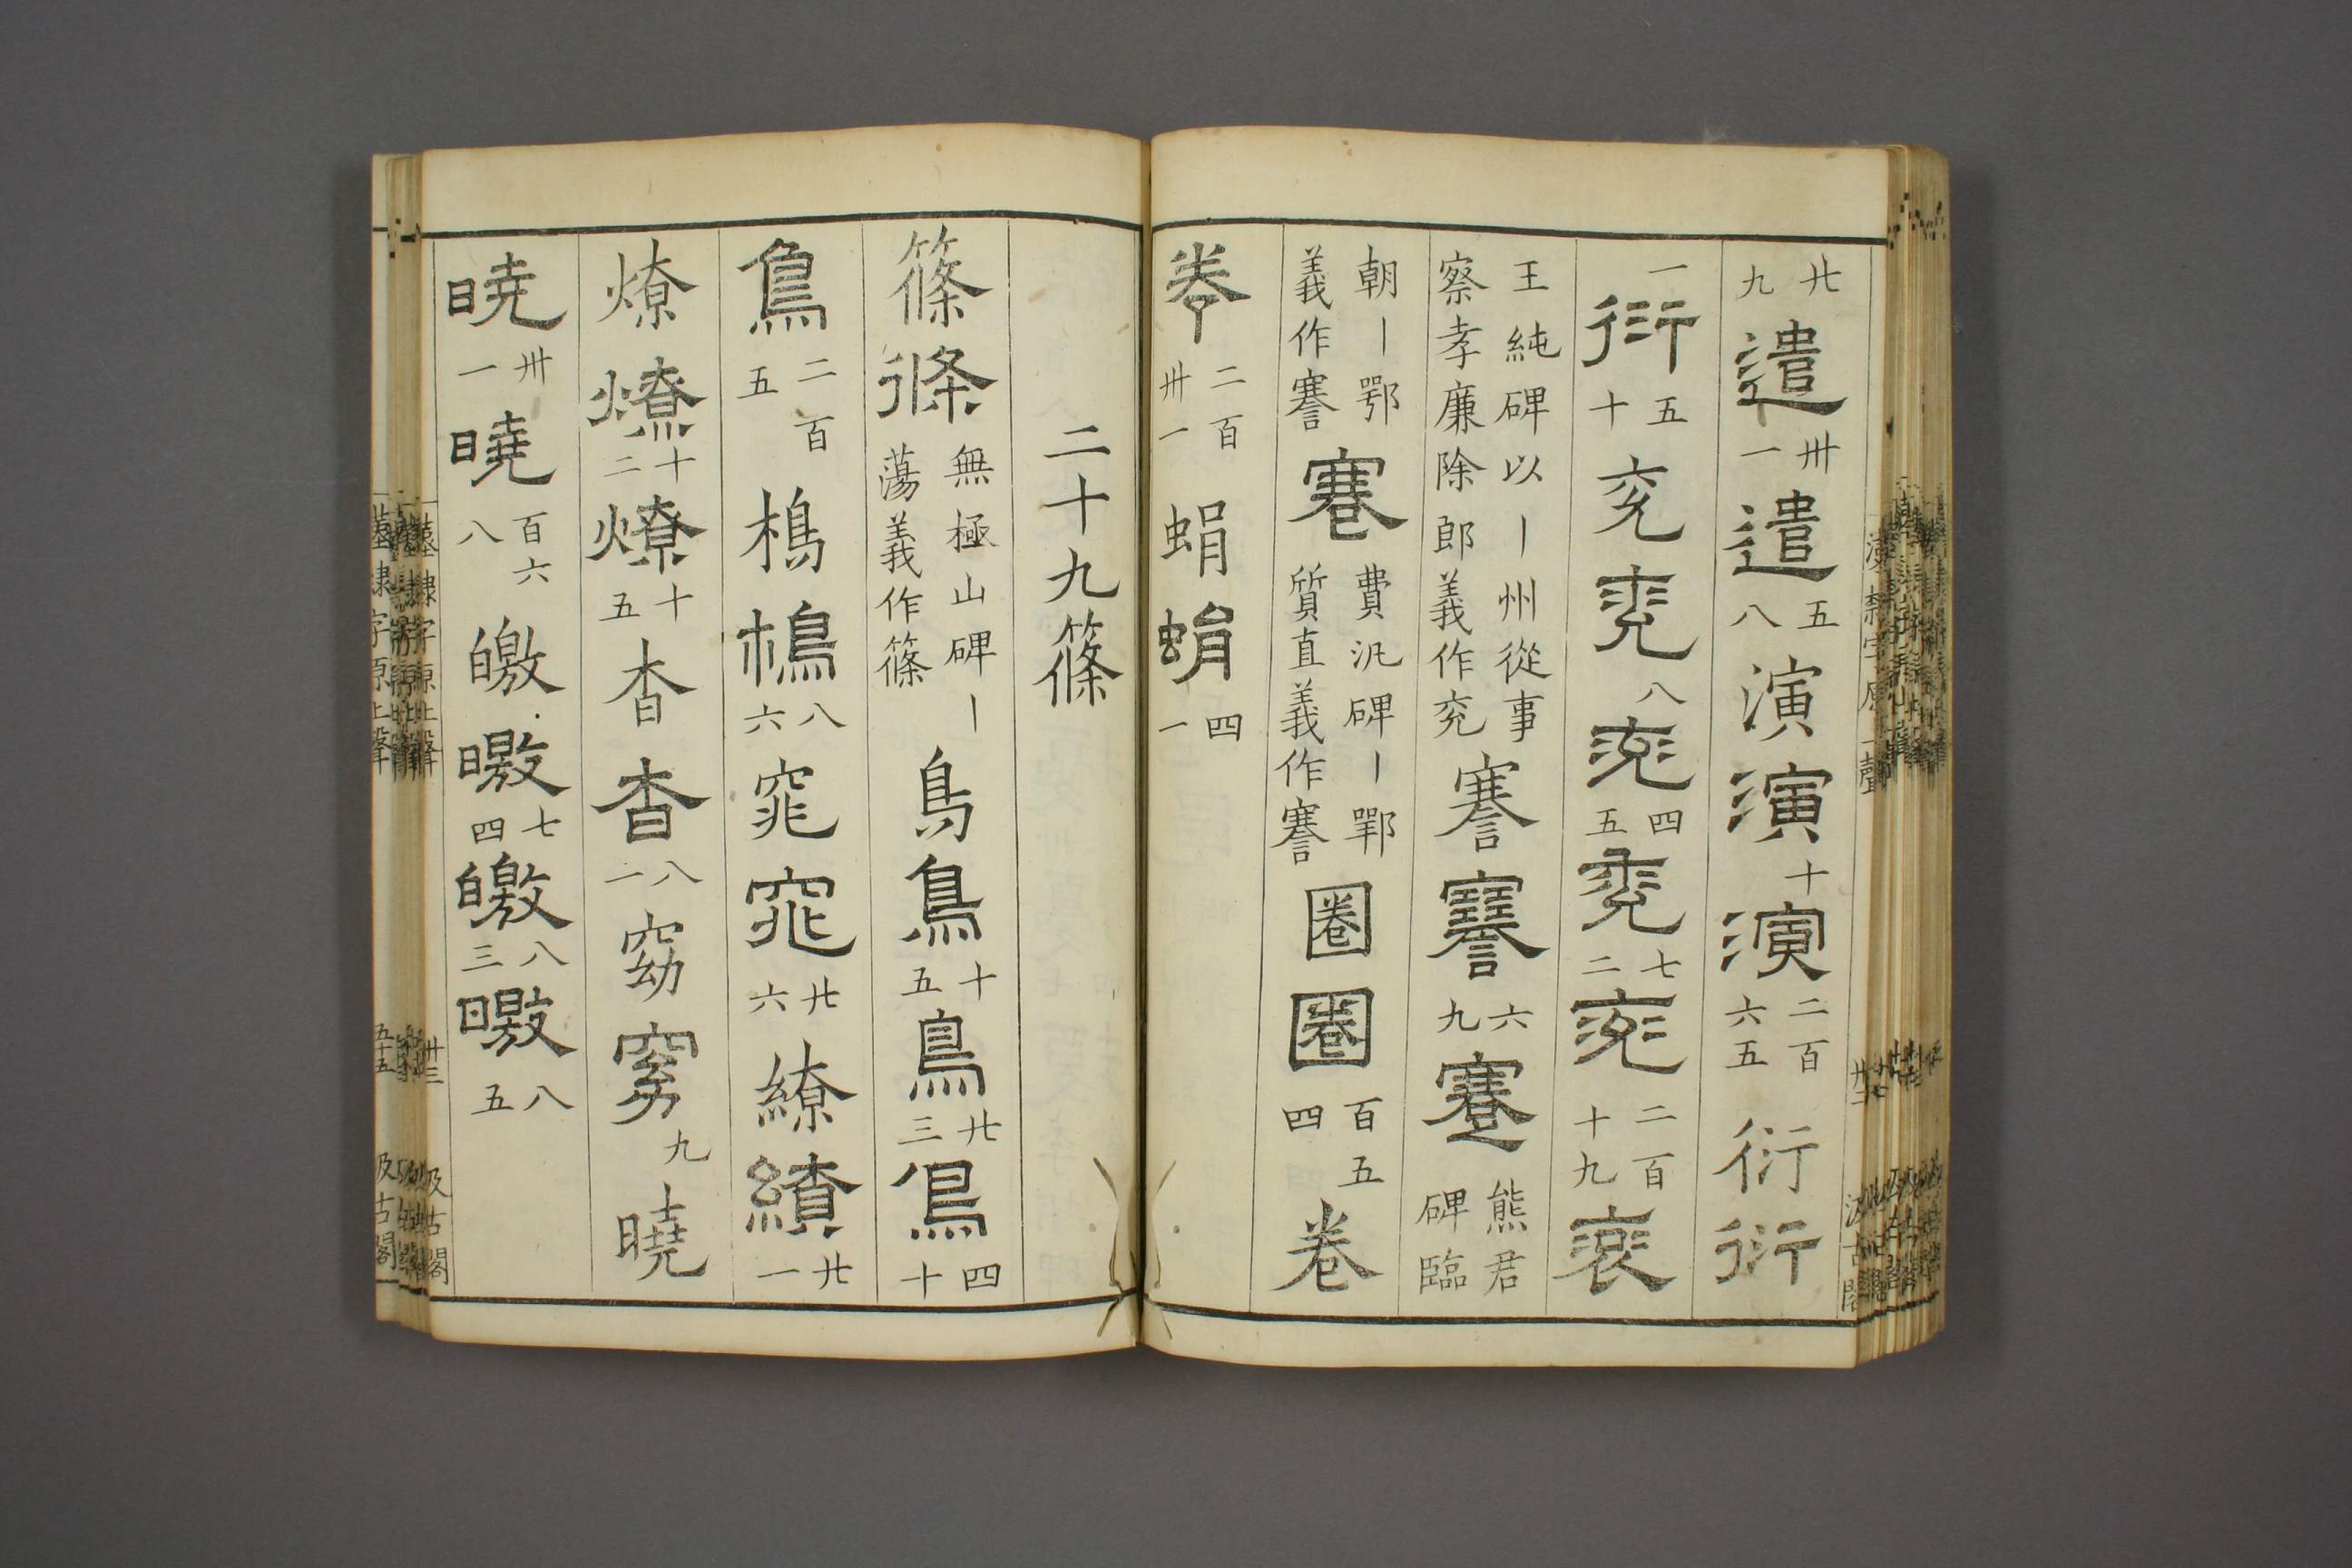 廿九遣卅一遣五八演演十演二百六五衍衍
一衍五十兖兖八兖四五兖七二兖二百十九衮
王純碑以丨州從事察孝廉除郎義作兖謇謇六九蹇熊君碑臨
朝丨鄂義作謇蹇費汎碑丨鄂質直義作謇圈圈百五四卷
卷二百卅一蜎蜎四一
二十九篠
篠篠無極山碑丨蕩義作篠鳥鳥十五鳥廿三鳥四十
鳥二百五樢樢八六窕窕廿六繚繚廿一
燎燎十二燎十五杳杳八一窈窈九曉
曉卅一曉百六八皦皦七四皦八三皦八五
漢隸字原上聲
汲古閣